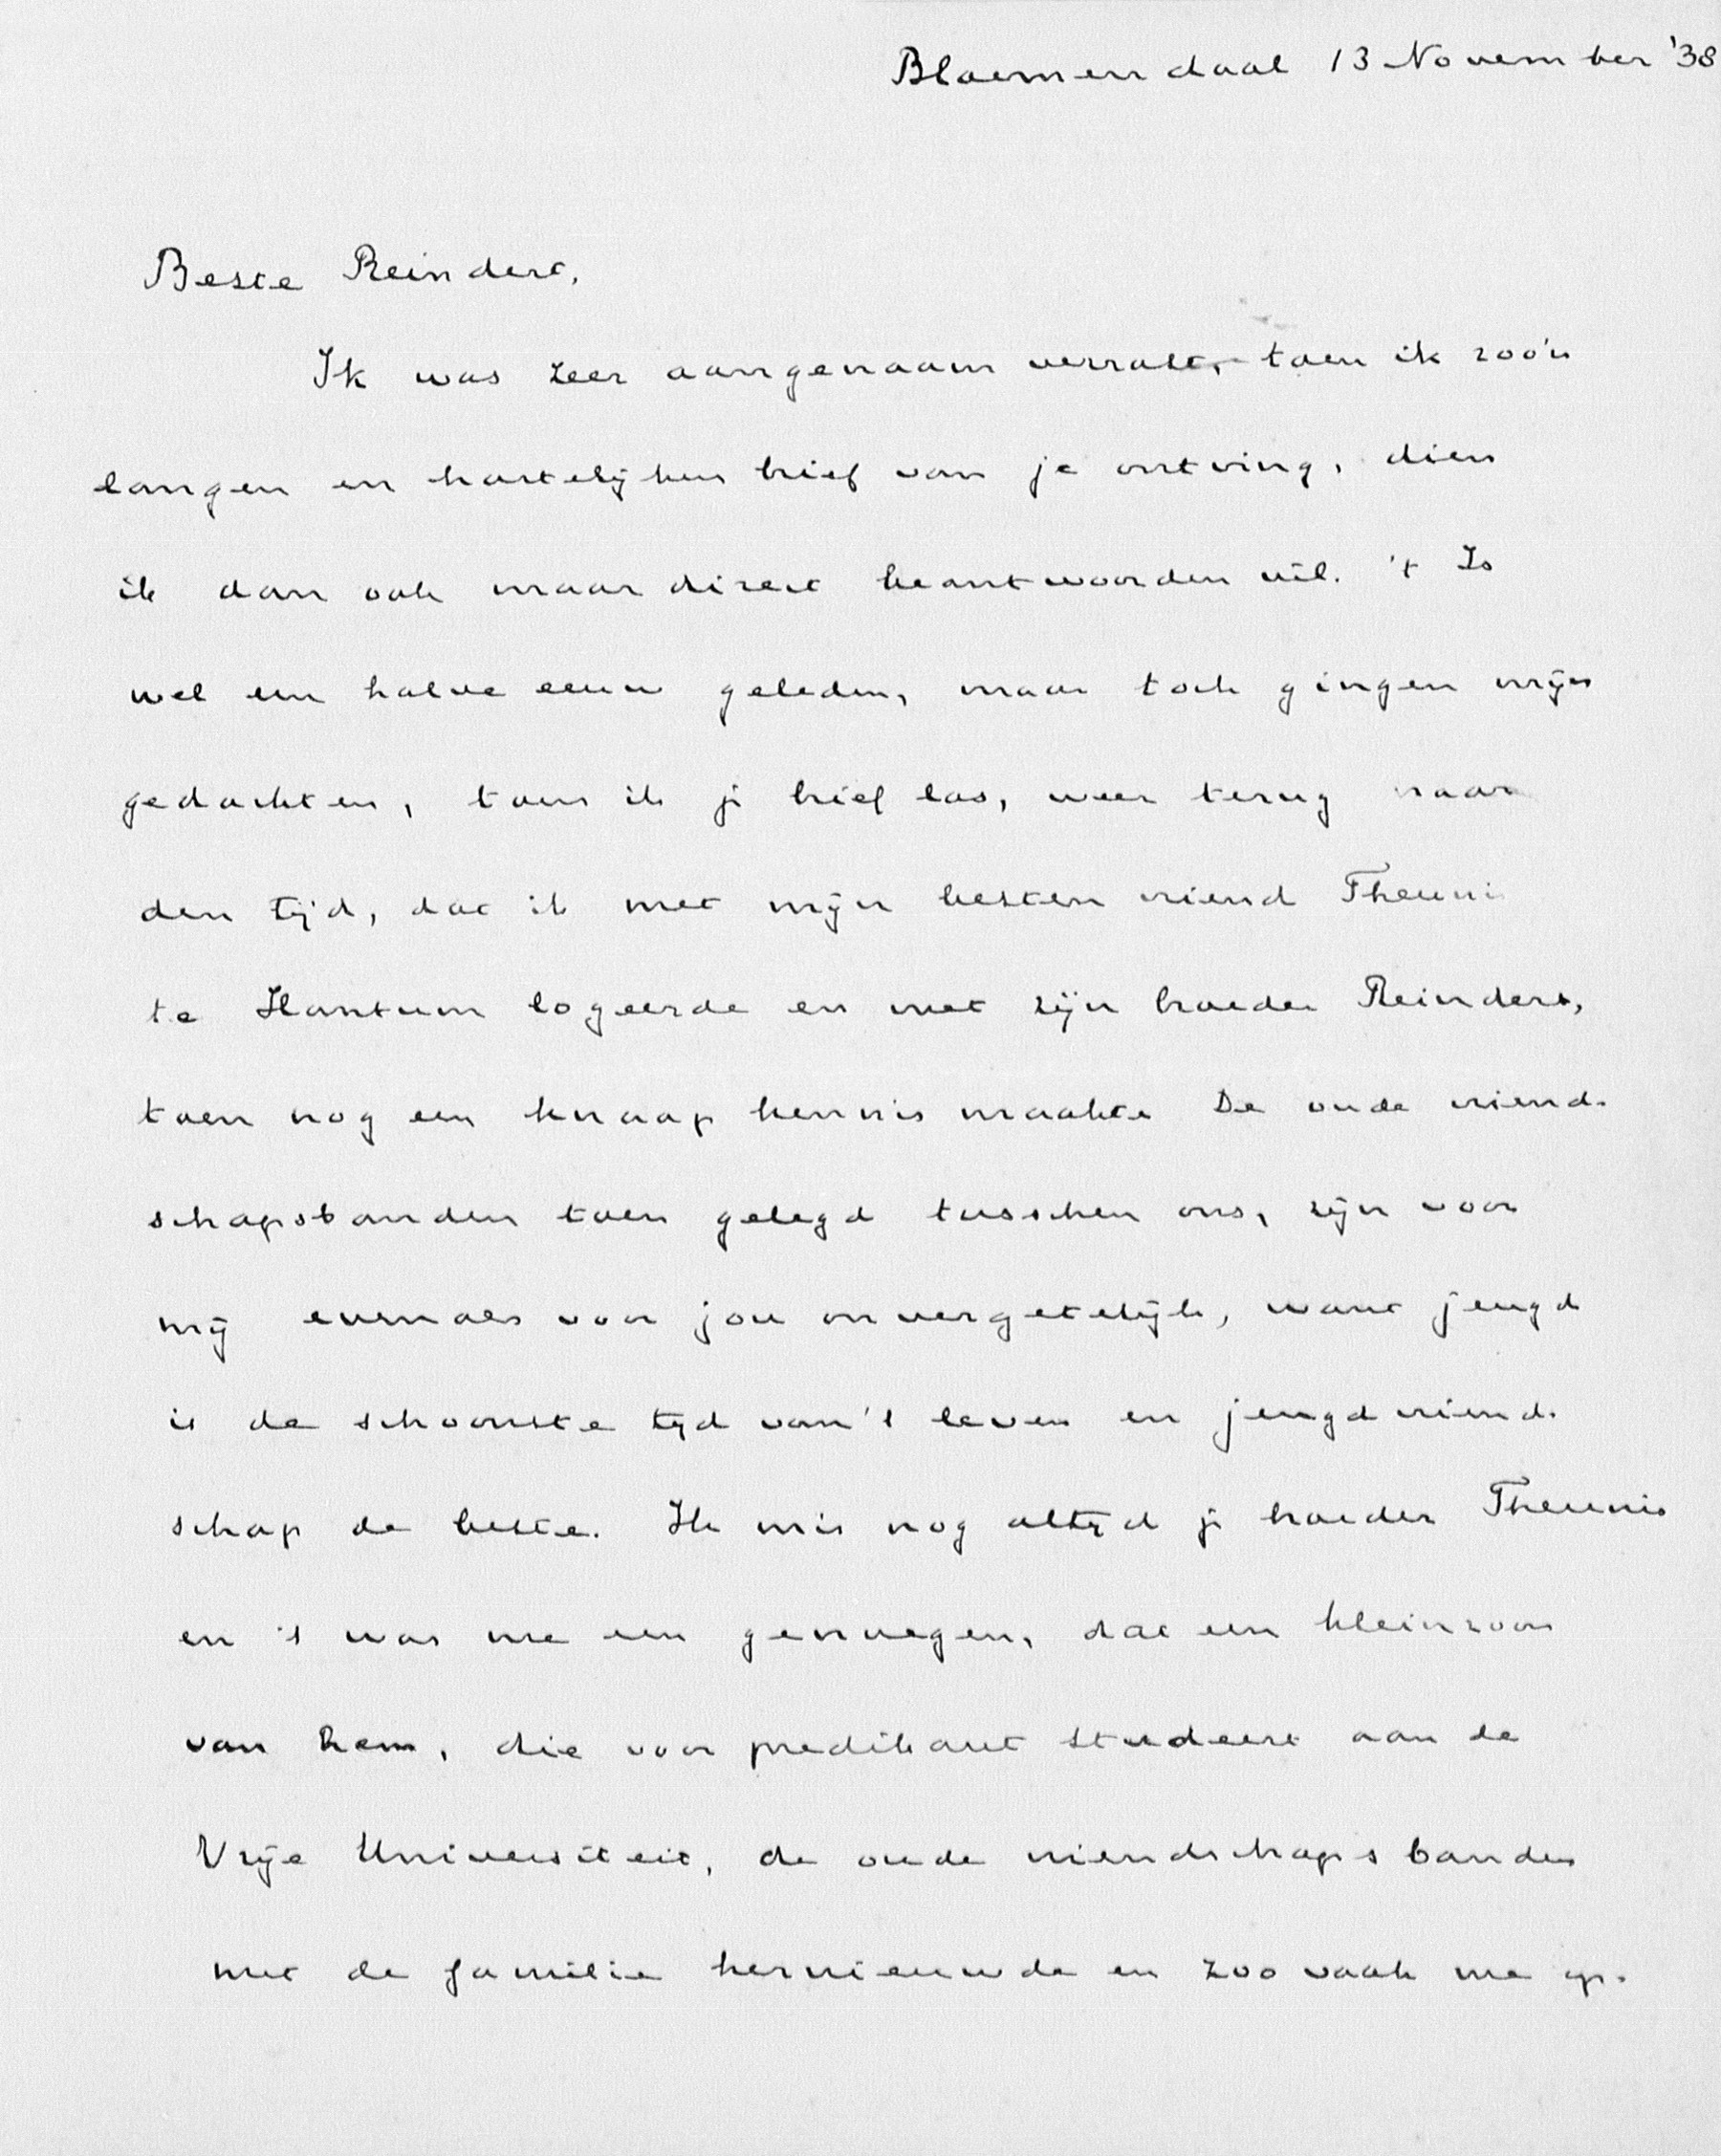 Bloemendaal 13 November '38
Beste Reindert,
Ik was zeer aangenaam verrast, toen ik zoo'n
langen en hartelijken brief van je ontving, dien
ik dan ook maar direct beantwoorden wil. 't Is
wel een halve eeuw geleden, maar toch gingen mijn
gedachten, toen ik je brief las, weer terug naar
den tijd, dat ik met mijn besten vriend Theunis
te Hantum logeerde en met zijn broeder Reindert,
toen nog een knaap kennis maakte De oude vriend-
schapsbanden toen gelegd tusschen ons, zijn voor
mij evenals voor jou onvergetelijk, want jeugd
is de schoonste tijd van 't leven en jeugdvriend-
schap de beste. Ik mis nog altijd je broeder Theunis
en 't was me een genoegen, dat een kleinzoon
van hem, die voor predikant studeert aan de
Vrije Universiteit, de oude vriendschapsbanden
met de familie hernieuwde en zoo vaak me op-